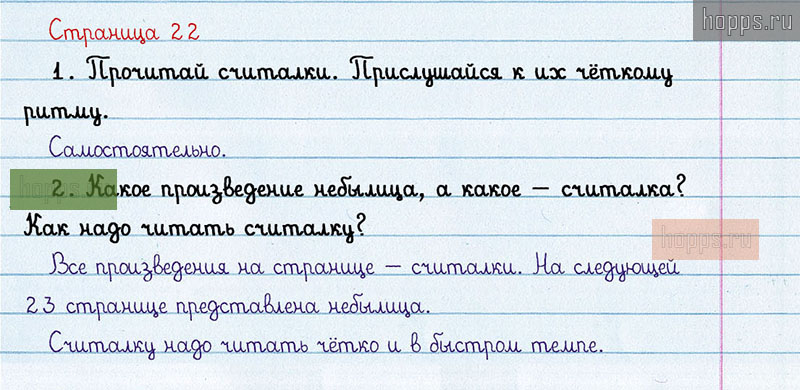 hopps.ru
Страница 22
1. Прочитай считалки. Прислушайся к их чёткому
ритму.
Самостоятельно.
hopps.ru
2. Какое произведение небылица, а какое — считалка?
Как надо читать считалку?
hopps.ru
Все произведения на странице — считалки. На следующей
23 странице представлена небылица.
Считалку надо читать чётко и в быстром темпе.